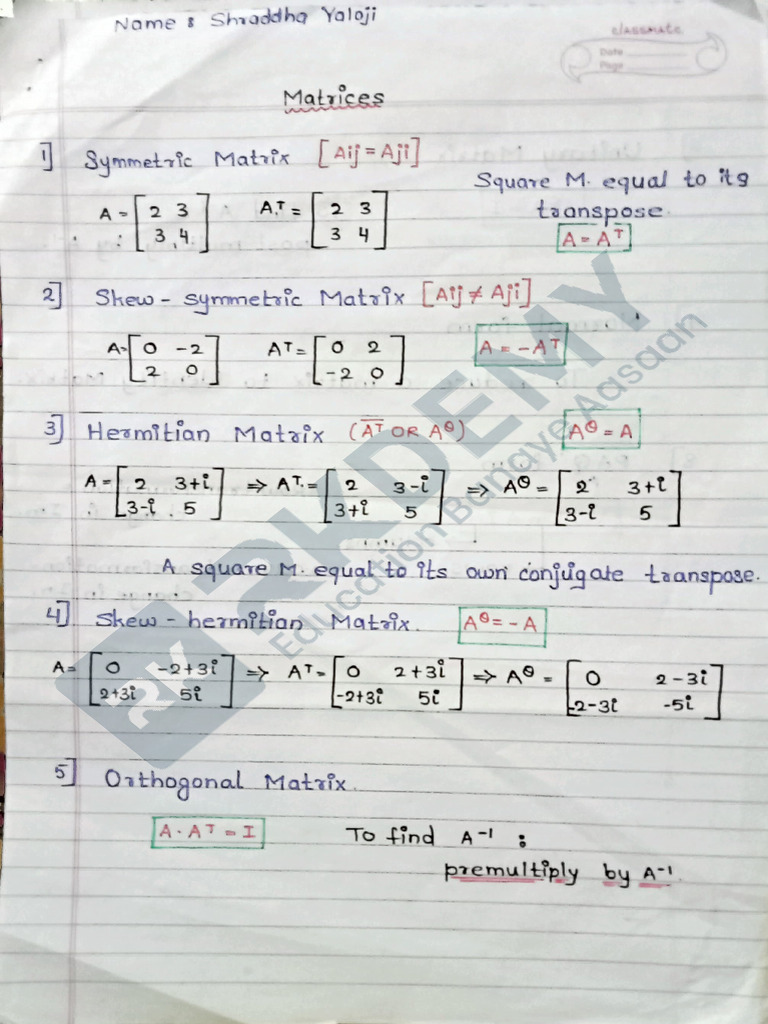 Name : Shraddha Yaloji
classmate
Date
Page
Matrices
1] Symmetric Matrix [Aij = Aji]
Square M. equal to its
transpose.
A = [2 3
3 4]
A.T = [2 3
3 4]
A = Aᵀ
2] Skew - symmetric Matrix [Aij ≠ Aji]
A = [0 -2
2 0]
Aᵀ = [0 2
-2 0]
A = -Aᵀ
3] Hermitian Matrix (A̅ᵀ OR Aᶿ)
Aᶿ = A
A = [2 3+i
3-i 5]
⇒ Aᵀ = [2 3-i
3+i 5]
⇒ Aᶿ = [2 3+i
3-i 5]
A square M. equal to its own conjugate transpose.
4] Skew - hermitian Matrix.
Aᶿ = -A
A = [0 -2+3i
2+3i 5i]
⇒ Aᵀ = [0 2+3i
-2+3i 5i]
⇒ Aᶿ = [0 2-3i
-2-3i -5i]
5] Orthogonal Matrix.
A · Aᵀ = I
To find A⁻¹ :
premultiply by A⁻¹.
RK RKDEMY
Education Banaye Aasaan